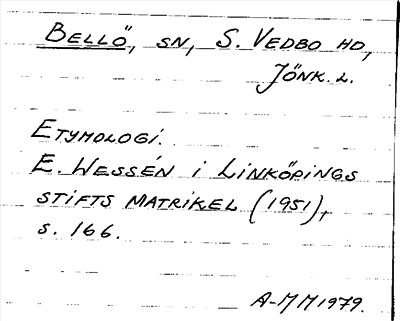 BELLÖ, SN, S. VEDBO HD,
JÖNK. L.
ETYMOLOGI.
E. WESSÉN I LINKÖPINGS
STIFTS MATRIKEL (1951),
S. 166.
A-M M 1979.